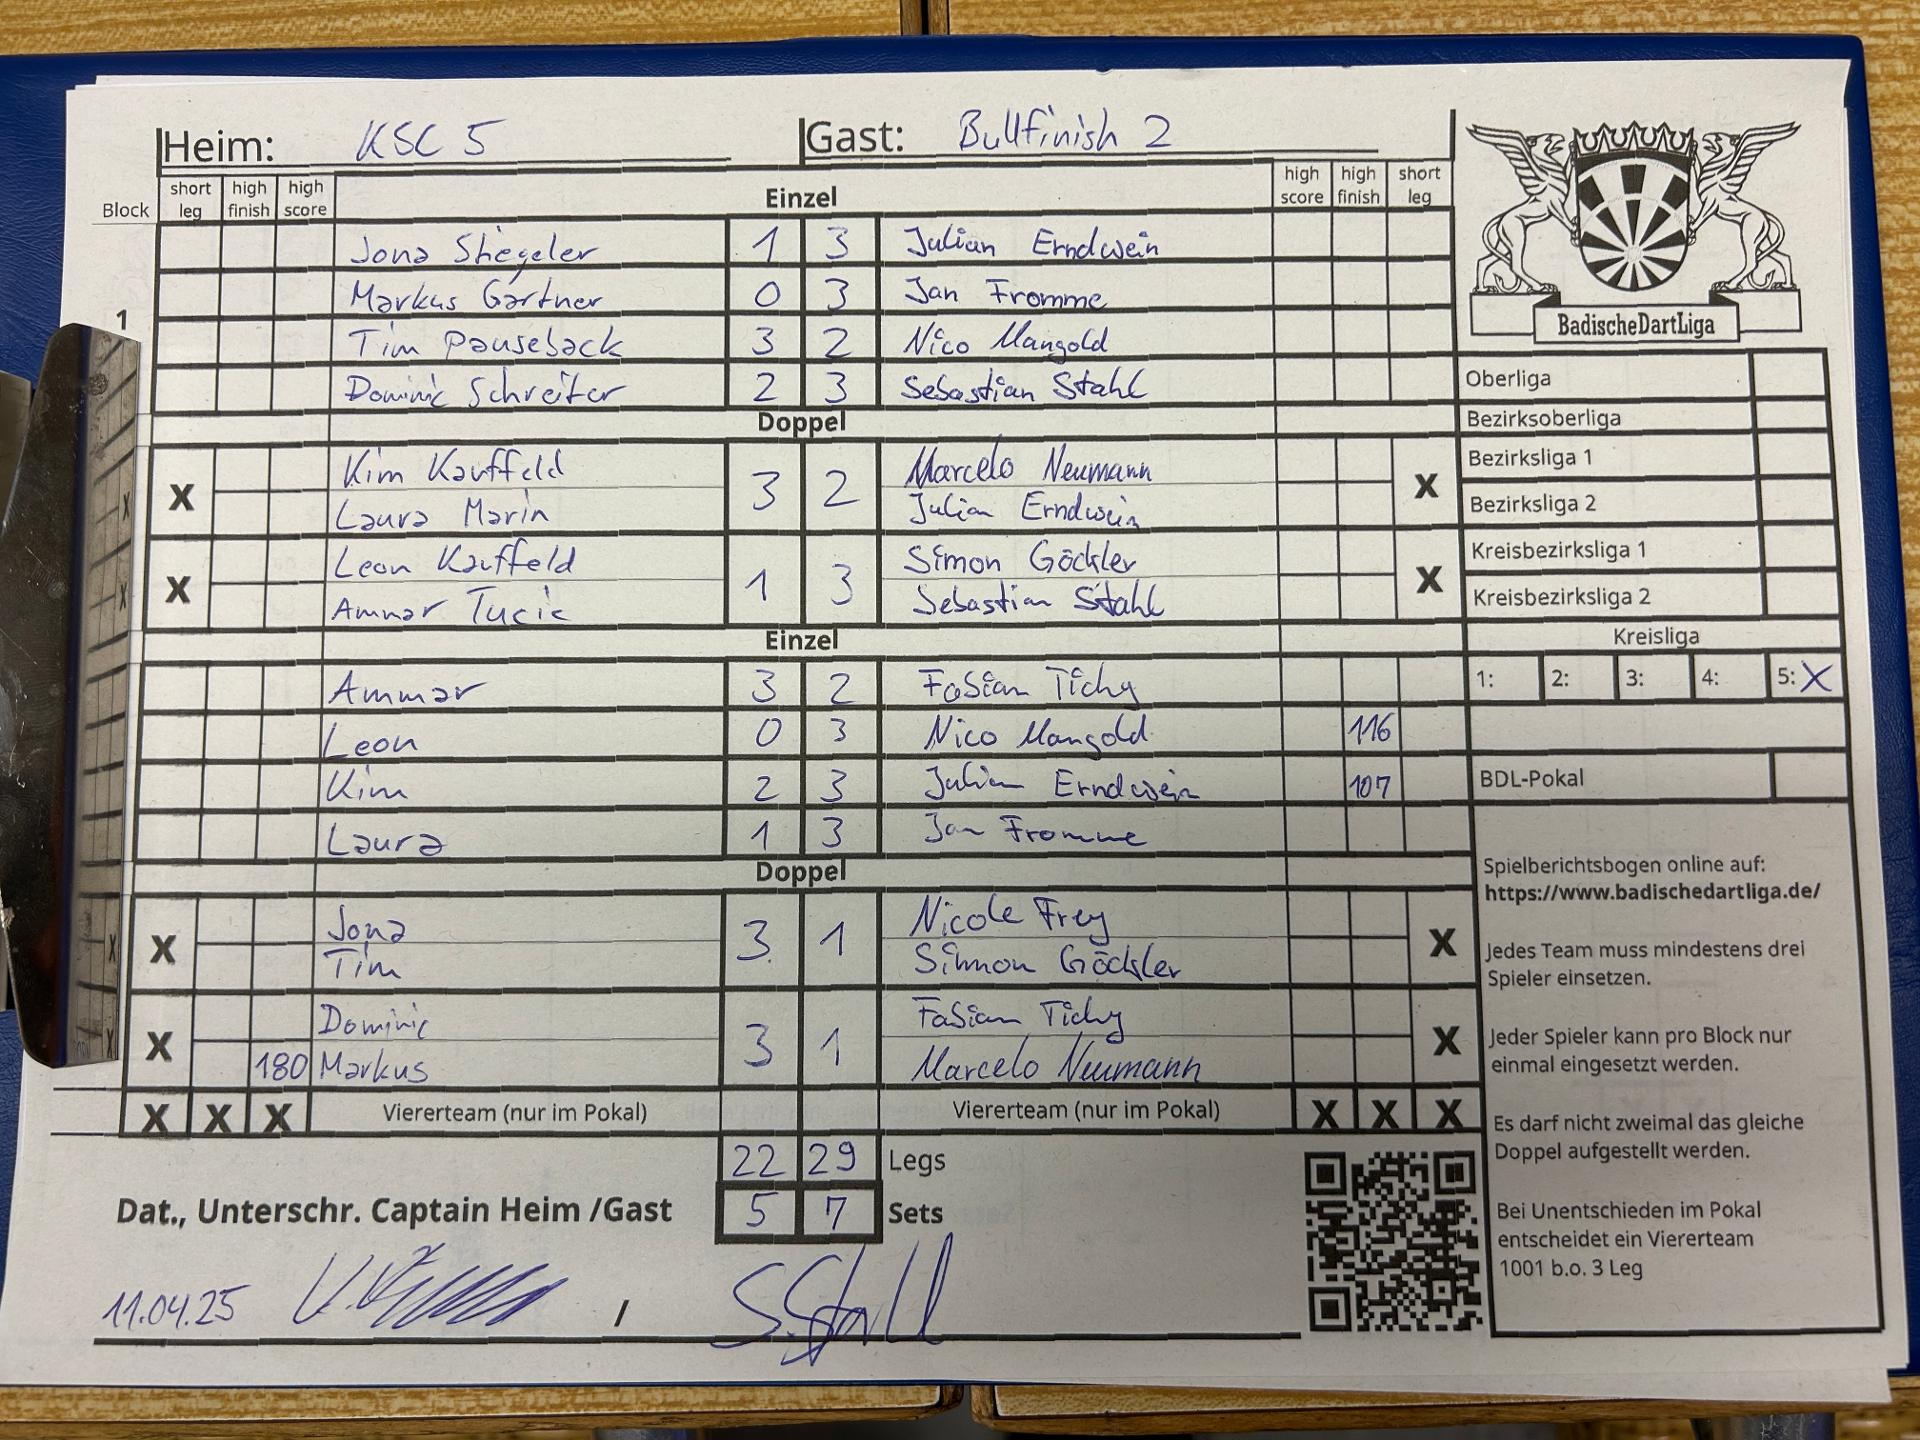 Heim: KSC 5 Gast: Bullfinish 2
Block short leg high finish high score Einzel high score high finish short leg
1
Jona Stiegeler 1 3 Julian Erndwein
Markus Gärtner 0 3 Jan Fromme
Tim Pauseback 3 2 Nico Mangold
Dominic Schreiter 2 3 Sebastian Stahl
Doppel
X Kim Kauffeld 3 2 Marcelo Neumann X
Laura Marin Julian Erndwein
X Leon Kauffeld 1 3 Simon Göckler X
Ammar Tucic Sebastian Stahl
Einzel
Ammar 3 2 Fabian Tichy
Leon 0 3 Nico Mangold 116
Kim 2 3 Julian Erndwein 107
Laura 1 3 Jan Fromme
Doppel
X Jona 3 1 Nicole Frey X
Tim Simon Göckler
X Dominic 3 1 Fabian Tichy X
180 Markus Marcelo Neumann
X X X Viererteam (nur im Pokal) Viererteam (nur im Pokal) X X X
22 29 Legs
Dat., Unterschr. Captain Heim /Gast 5 7 Sets
11.04.25 / S. Stahl
BadischeDartLiga
Oberliga
Bezirksoberliga
Bezirksliga 1
Bezirksliga 2
Kreisbezirksliga 1
Kreisbezirksliga 2
Kreisliga
1: 2: 3: 4: 5: X
BDL-Pokal
Spielberichtsbogen online auf:
https://www.badischedartliga.de/
Jedes Team muss mindestens drei
Spieler einsetzen.
Jeder Spieler kann pro Block nur
einmal eingesetzt werden.
Es darf nicht zweimal das gleiche
Doppel aufgestellt werden.
Bei Unentschieden im Pokal
entscheidet ein Viererteam
1001 b.o. 3 Leg